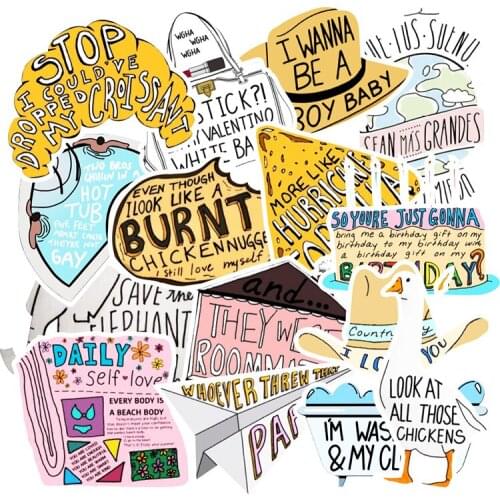 STOP
I COULD'VE
DROPPED
MY CROISSANT
WGHA
WGHA
WGHA
STICK?!
MY VALENTINO
WHITE BA
I WANNA
BE A
BOY BABY
SEAN MÁS GRANDES
TWO BROS
CHILLIN IN A
HOT
TUB
FIVE FEET
APART CAUSE
THEY'RE NOT
GAY
EVEN THOUGH
I LOOK LIKE A
BURNT
CHICKEN NUGGE
I still love myself
MORE LIKE
HURRICANE
SO YOU'RE JUST GONNA
bring me a birthday gift on my
birthday to my birthday party with
a birthday gift on my
BIRTHDAY?
SAVE THE
ELEPHANT
and...
THEY WE
ROOMMA
Country
I LO YOU
DAILY
self love
EVERY BODY IS
A BEACH BODY
WHOEVER THREW THAT
PAP
LOOK AT
ALL THOSE
CHICKENS
I'M WAS
& MY CL